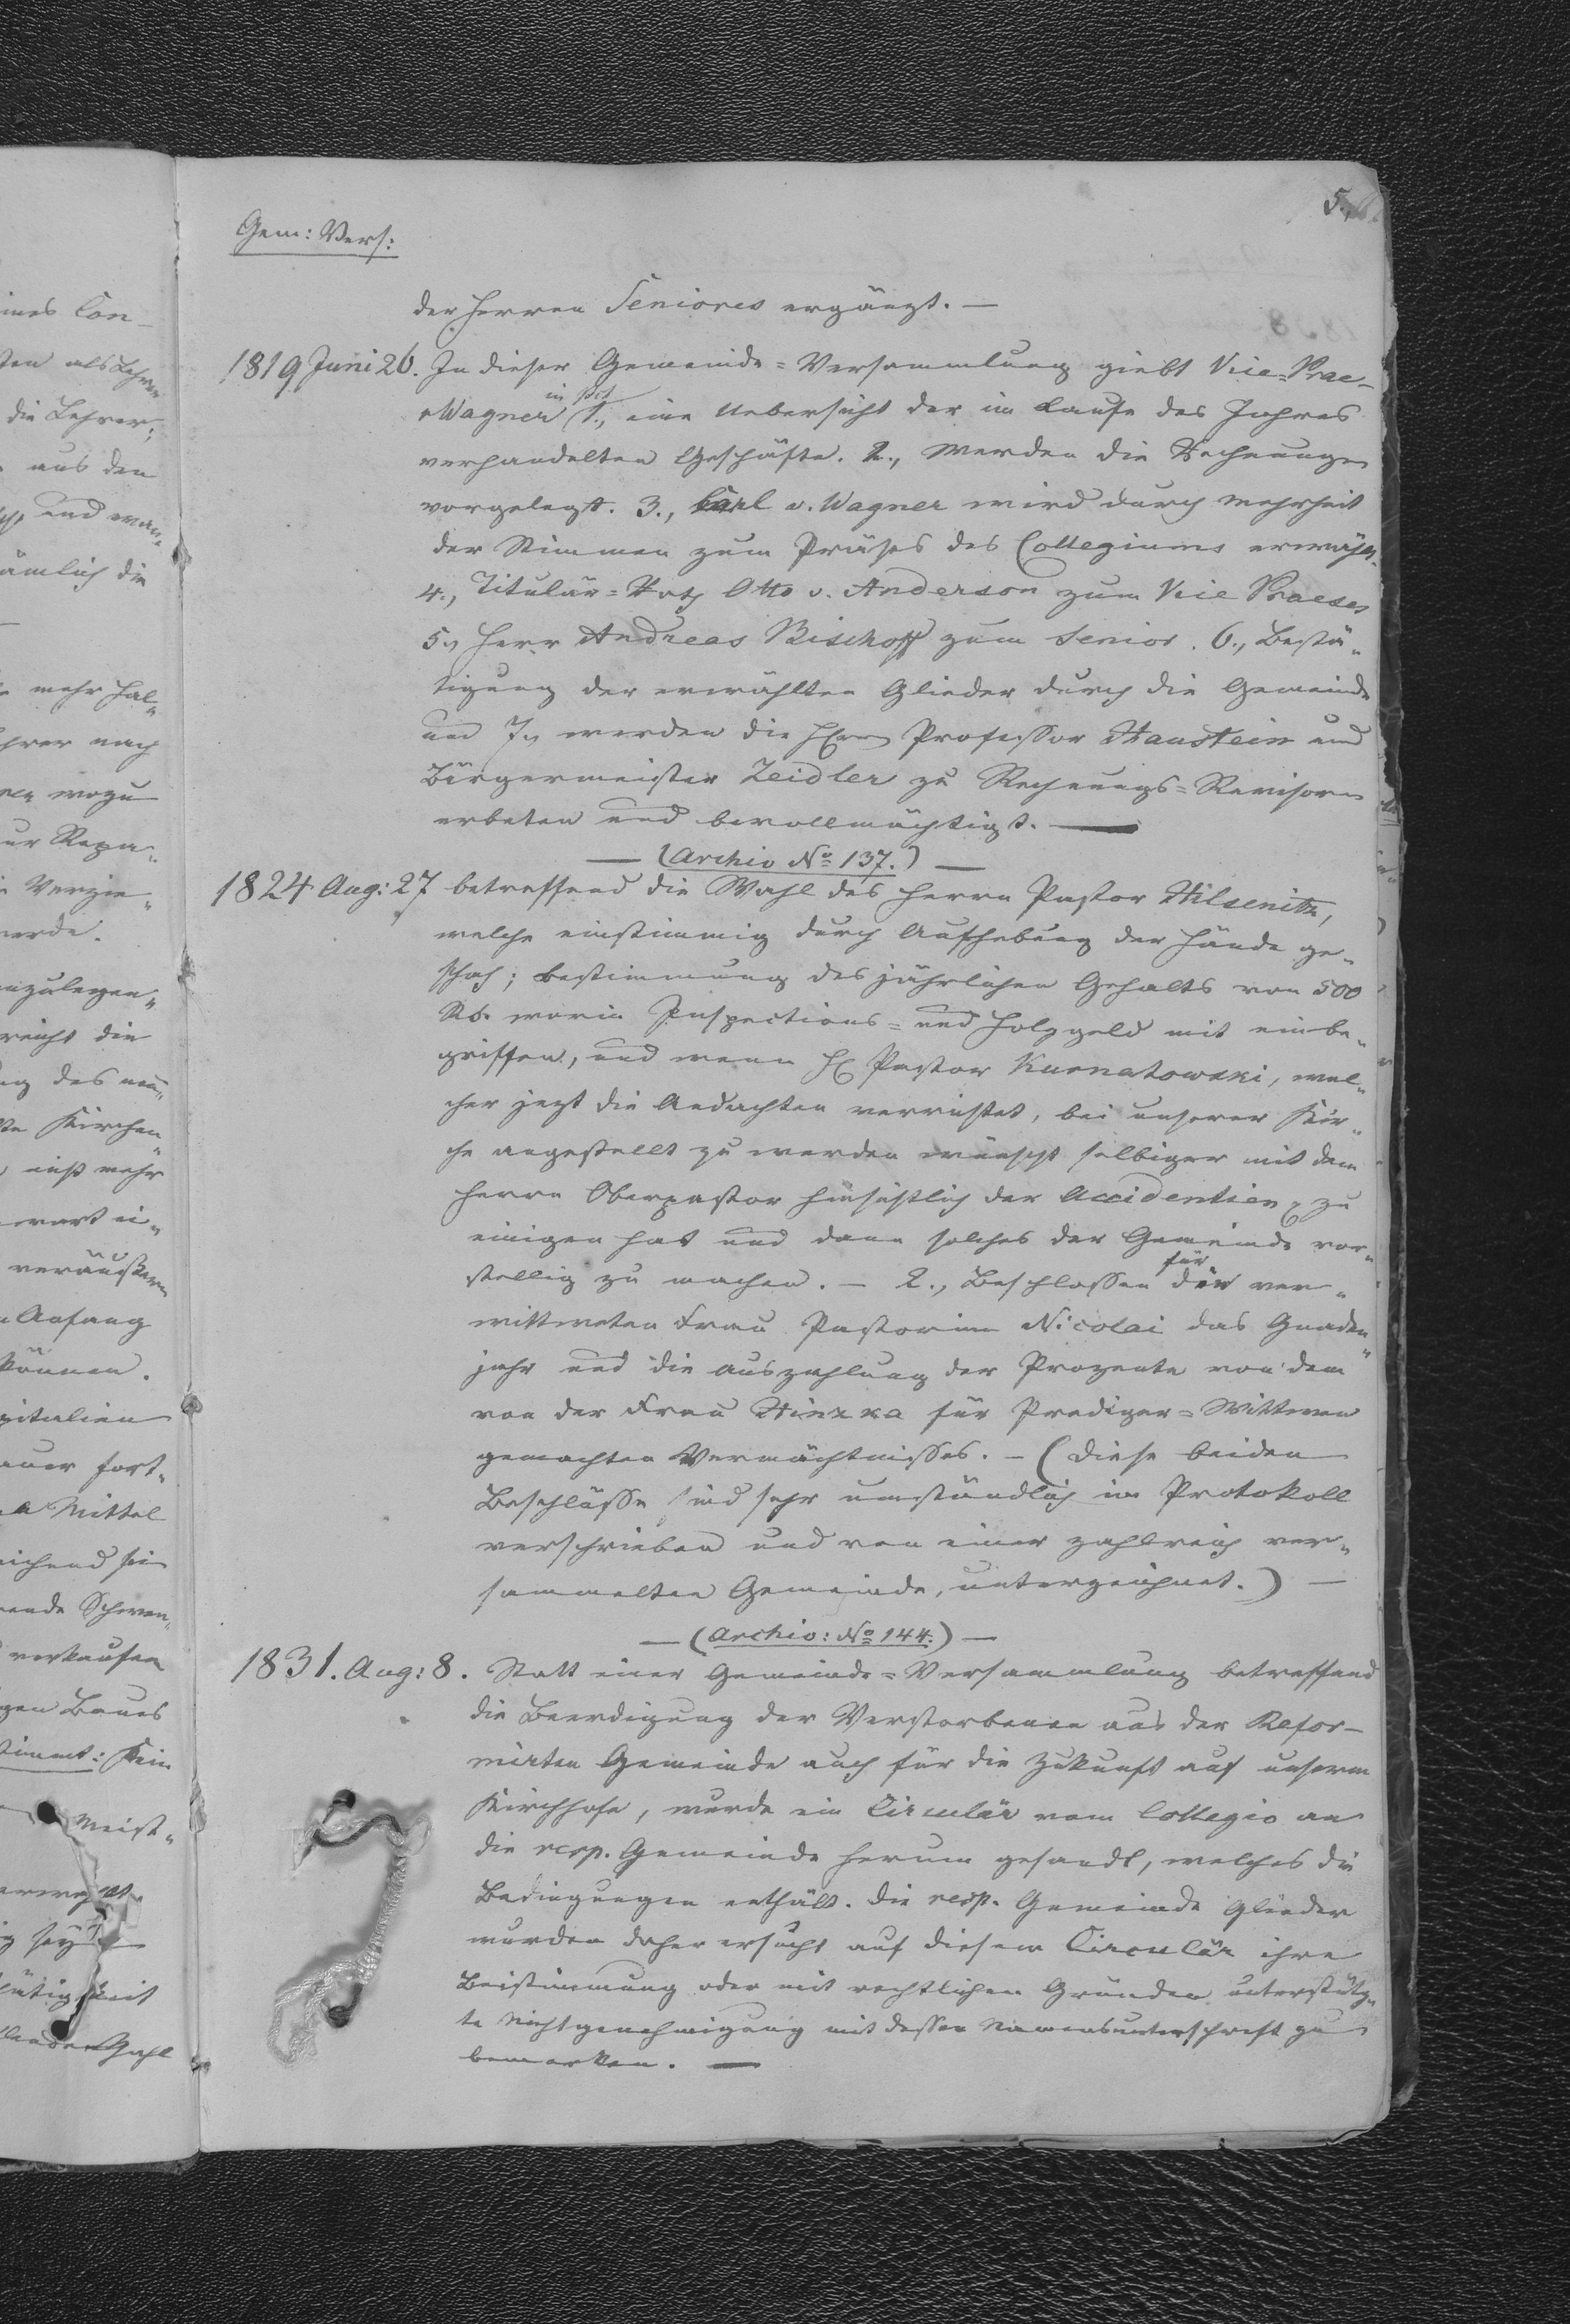 5.
Gem: Vers:
der Herren Seniores ergänzt. —
1819 Juni 26. In dieser Gemeinde=Versammlung giebt Vice=Prae-
v Wagner 1., eine Uebersicht der im Laufe des Jahres
verhandelten Geschäfte. 2., Werden die Rechnungen
vorgelegt. 3., Carl v. Wagner wird durch Mehrheit
der Stimmen zum Präses des Collegiums erwählt.
4., Titulär=Rath Otto v. Anderson zum Vice Praeses
5., Herr Andreas Bischoff zum Senior. 6., Bestä„
tigung der erwählten Glieder durch die Gemeinde
und 7., werden die Herrn Professor Haustein und
Bürgermeister Zeidler zu Rechnungs=Revisoren
erbeten und bevollmächtigt. —
— (Archiv No 137.) —
1824 Aug: 27 betreffend die Wahl des Herrn Pastor Hilsenitz,
welche einstimmig durch Aufhebung der Hände ge„
schah; Bestimmung des jährlichen Gehalts von 500
Rb. worin Inspections= und Holzgeld mit einbe„
griffen, und wenn H Pastor Kurnatowski, wel„
cher jezt die Andachten verrichtet, bei unserer Kir„
che angestellt zu werden wünscht selbiger mit dem
Herrn Oberpastor hinsichtlich der Accidentien zu
einigen hat und dann solches der Gemeinde vor„
stellig zu machen. — 2., Beschlossen für die ver„
wittweten Frau Pastorinn Nicolai das Gnaden„
jahr und die Auszahlung der Prozente von dem
von der Frau Hinzka für Prediger=Wittwen
gemachten Vermächtnisses. — (Diese beiden
Beschlüsse sind sehr umständlich im Protokoll
verschrieben und von einer zahlreich ver„
sammelten Gemeinde, unterzeichnet.) —
— (Archiv: No 144.) —
1831. Aug: 8. Statt einer Gemeinde=Versammlung betreffend
die Beerdigung der Verstorbenen aus der Refor-
mirten Gemeinde auch für die Zukunft auf unserm
Kirchhofe, wurde ein Circulär vom Collegio an
die resp. Gemeinde herum gesandt, welches die
Bedingungen enthält. Die resp. Gemeinde Glieder
wurden daher ersucht auf diesem Circulär ihre
Beistimmung oder mit rechtlichen Gründen unterstütz„
te Nichtgenehmigung mit dessen Namensunterschrift zu
bemerken. —